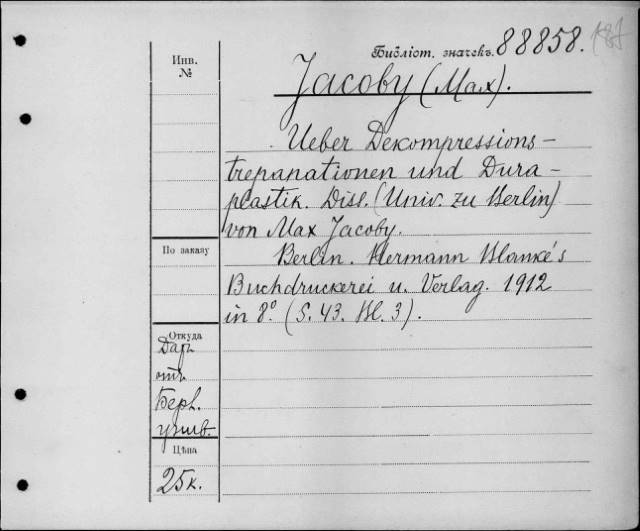 Библіот. значекъ. 88858.
Инв.
№
Jacoby (Max).
Ueber Dekompressions-
trepanationen und Dura-
plastik. Diss. (Univ. zu Berlin)
von Max Jacoby.
По заказу
Berlin. Hermann Blanké's
Buchdruckerei u. Verlag. 1912
in 8º (S. 43. Bl. 3).
Откуда
Даръ
отъ
Берл.
унив.
Цѣна
25к.